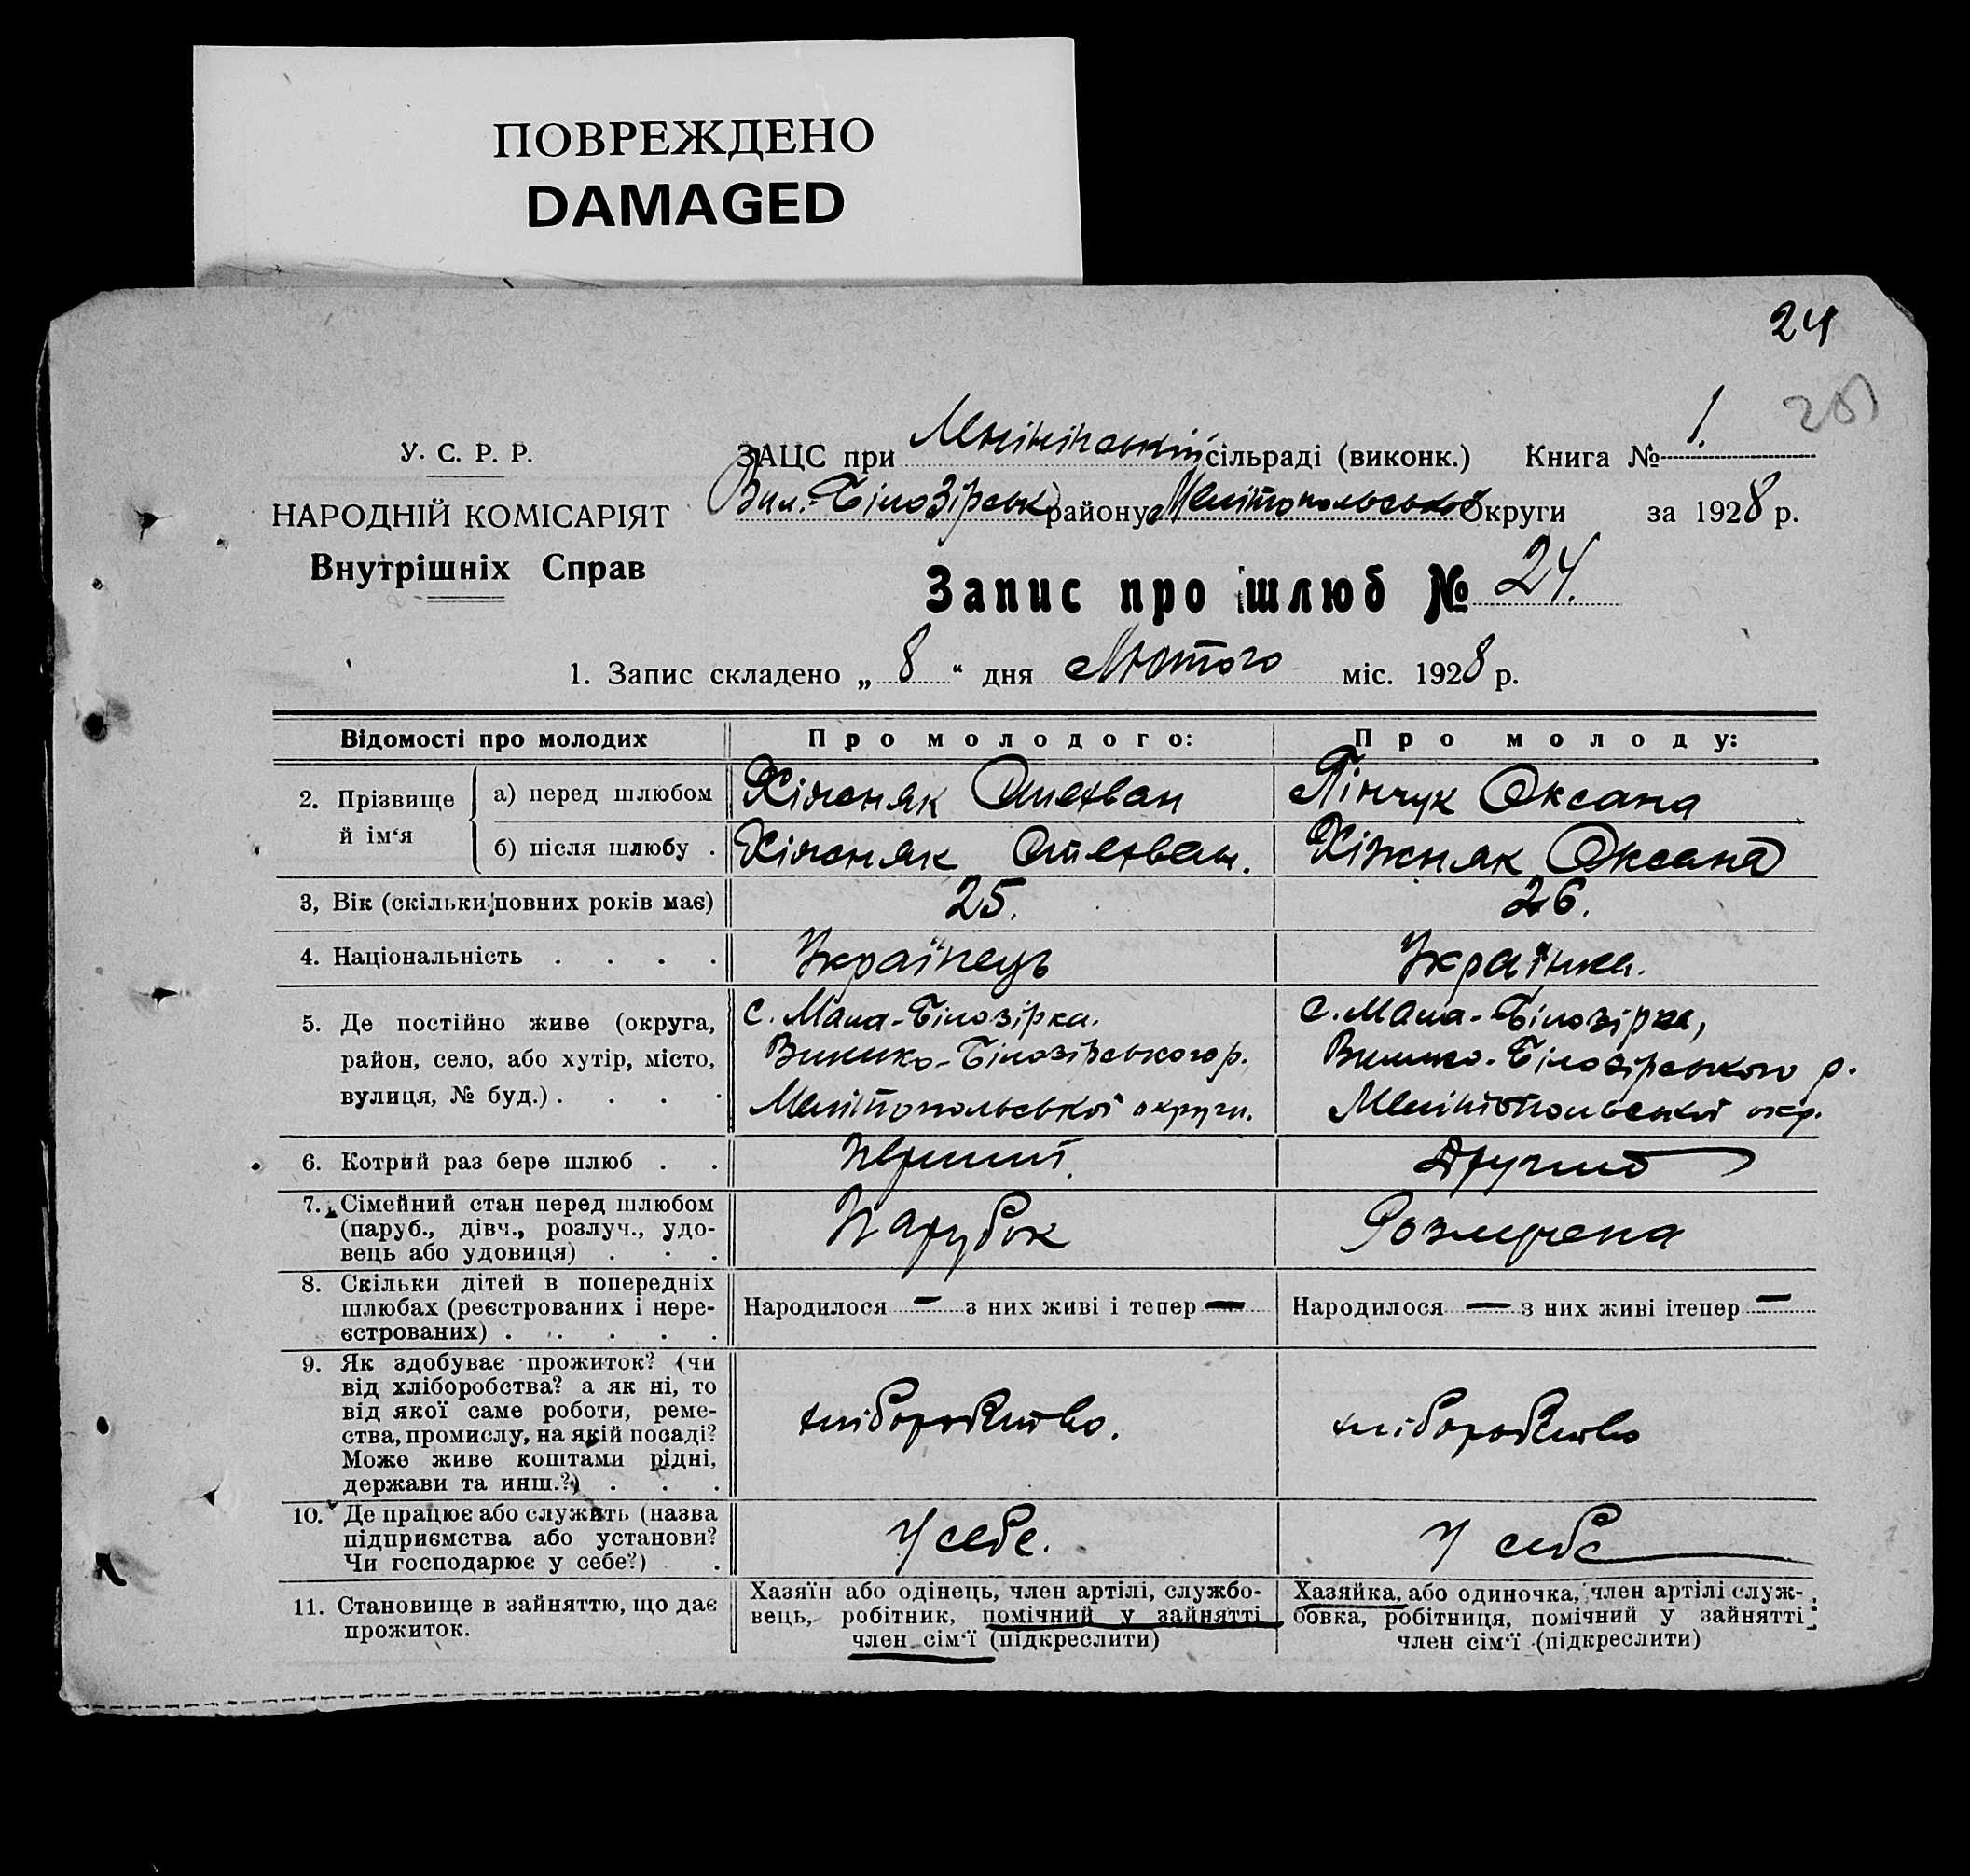 ПОВРЕЖДЕНО
DAMAGED
24
У. С. Р. Р.
ЗАЦС при Ленінській сільраді (виконк.) Книга № 1.
НАРОДНІЙ КОМІСАРІЯТ
Вел.-Білозірськ району Мелітопольської Округи за 1928 р.
Внутрішніх Справ
Запис про шлюб № 24.
1. Запис складено „ 8 “ дня Лютого міс. 1928 р.
Відомості про молодих
Про молодого:
Про молоду:
2. Прізвище й ім‘я
а) перед шлюбом
Хіжняк Стефан
Пінчук Оксана
б) після шлюбу .
Хіжняк Стефан.
Хіжняк Оксана
3, Вік (скільки повних років має)
25.
26.
4. Національність . . . .
Українець
Українка.
5. Де постійно живе (округа,
район, село, або хутір, місто,
вулиця, № буд.) . . . .
с. Мала-Білозірка.
Велико-Білозірського р.
Мелітопольської округи.
с. Мала-Білозірка,
Велико-Білозірського р.
Мелітопольської окр.
6. Котрий раз бере шлюб . .
Перший.
Другий
7. Сімейний стан перед шлюбом
(паруб., дівч., розлуч., удо-
вець або удовиця) . . .
Парубок
Розлучена
8. Скільки дітей в попередніх
шлюбах (реєстрованих і нере-
єстрованих) . . . . .
Народилося — з них живі і тепер —
Народилося — з них живі і тепер —
9. Як здобуває прожиток? (чи
від хліборобства? а як ні, то
від якої саме роботи, реме-
ства, промислу, на якій посаді?
Може живе коштами рідні,
держави та инш.?) . . .
хліборобство.
хліборобство
10. Де працює або служить (назва
підприємства або установи?
Чи господарює у себе?) .
У себе.
У себе
11. Становище в зайняттю, що дає
прожиток.
Хазяїн або одінець, член артілі, службо-
вець, робітник, помічний у зайнятті
член сім‘ї (підкреслити)
Хазяйка, або одиночка, член артілі служ-
бовка, робітниця, помічний у зайнятті
член сім‘ї (підкреслити)